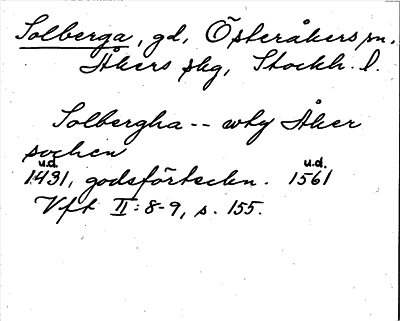 Solberga, gd, Österåkers sn,
Åkers skg, Stockh. l.
Solbergha -- wthy Åker
sochen
u.d. u.d.
1431, godsförteckn. 1561
Vft II: 8-9, s. 155.